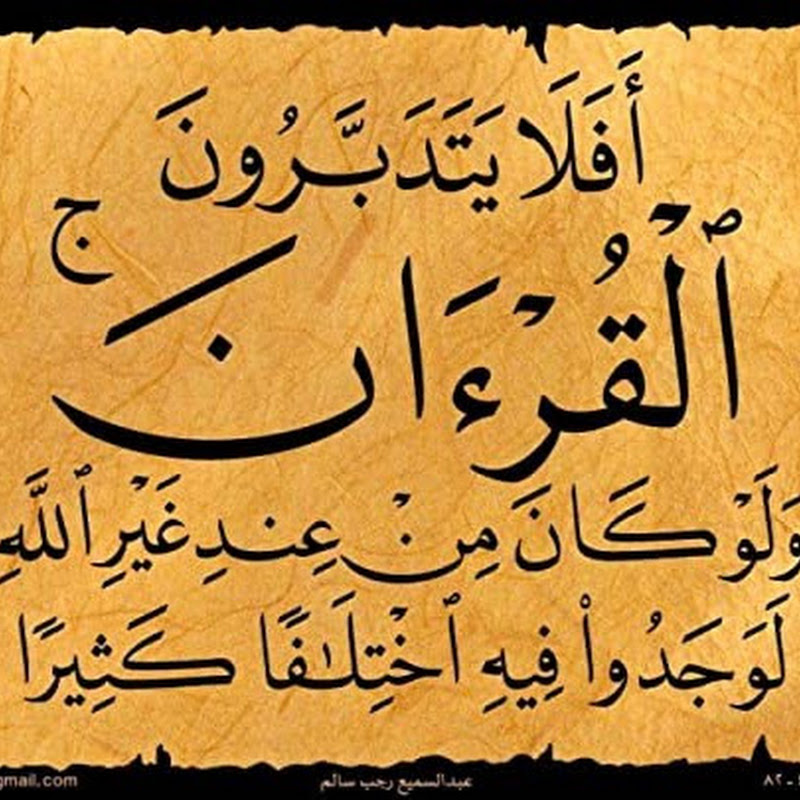 أَفَلَا يَتَدَبَّرُونَ
ٱلْقُرْءَانَ ۚ
وَلَوْ كَانَ مِنْ عِندِ غَيْرِ ٱللَّهِ
لَوَجَدُوا۟ فِيهِ ٱخْتِلَـٰفًا كَثِيرًا
gmail.com عبدالسميع رجب سالم ٨٢ -